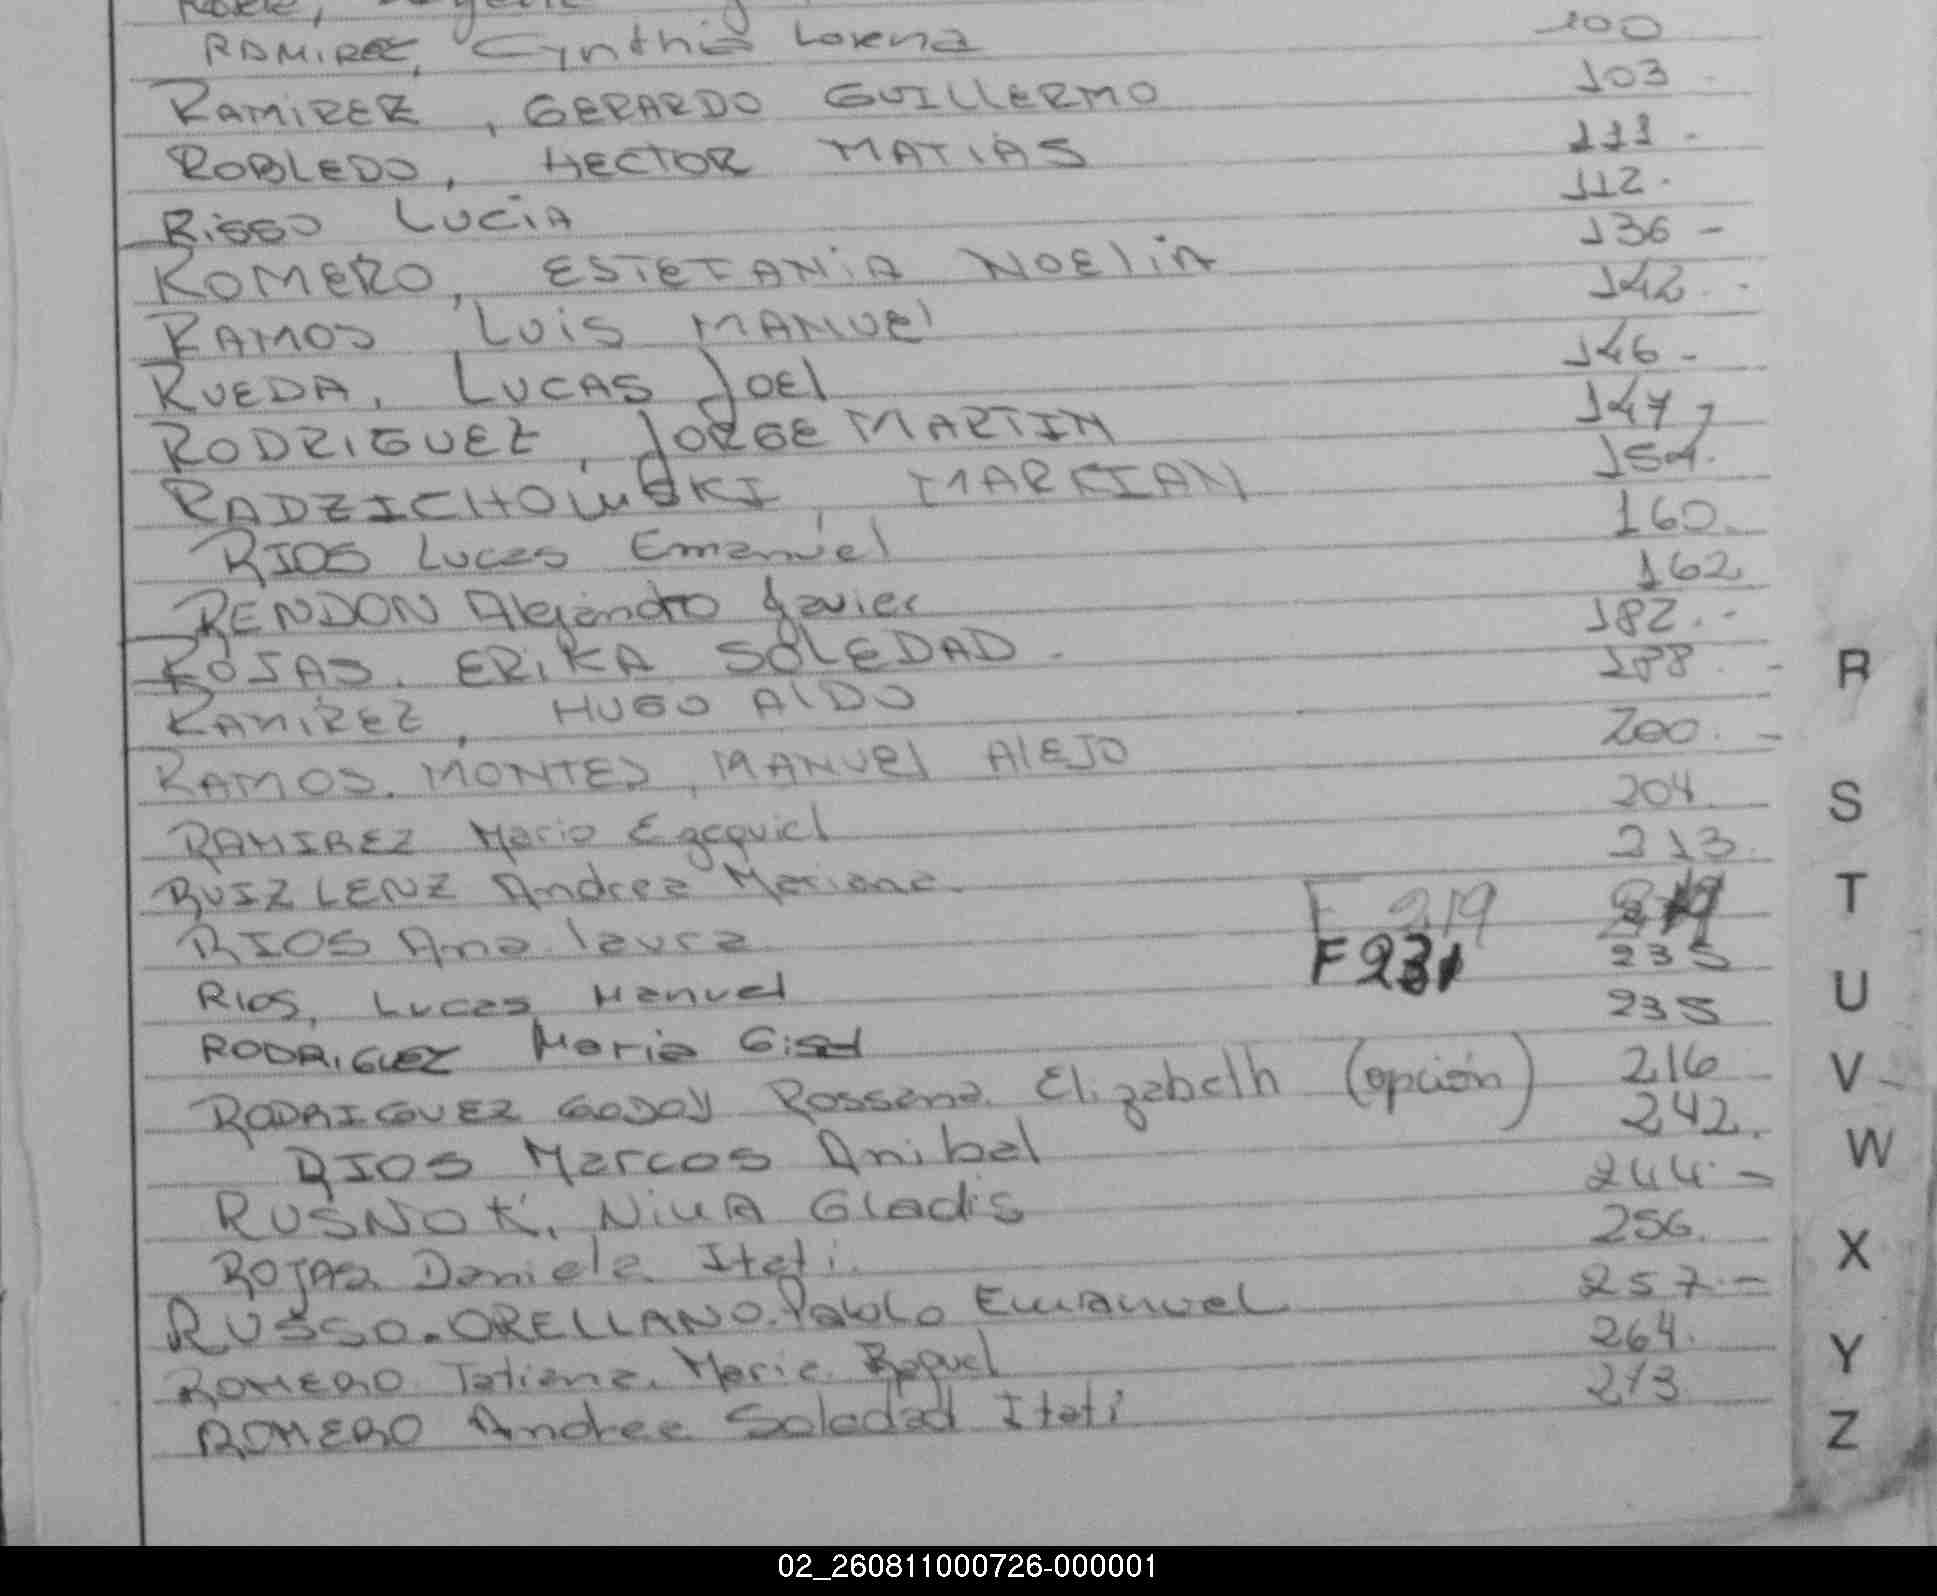 RAMIREZ, Cynthia Lorena 100
RAMIREZ, GERARDO GUILLERMO 103
ROBLEDO, HECTOR MATIAS 111 -
RISSO LUCIA 112.
ROMERO, ESTEFANIA NOELIA 136 -
RAMOS LUIS MANUEL 142. -
RUEDA, LUCAS JOEL 146 -
RODRIGUEZ, JORGE MARTIN 147 -
RADZICHOWSKI, MARKIAN 154.
RIOS Lucas Emanuel 160.
RENDON Alejandro Javier 162
ROJAS, ERIKA SOLEDAD. 182. -
RAMIREZ, HUGO ALDO 188. -
RAMOS. MONTES, MANUEL ALEJO 200. -
RAMIREZ Mario Ezequiel 204
RUIZ LENZ Andrea Mariana. 213.
RIOS Ana Laura F 219
RIOS, Lucas Manuel F231 235
RODRIGUEZ Maria Gisel 235
RODRIGUEZ GODOY Rossana Elizabelh (opción) 216
RIOS Marcos Anibal 242.
RUSNOK, NILDA Gladis 244. -
ROJAS Daniela Itati. 256.
RUSSO. ORELLANO. Pablo Emanuel 257. -
ROMERO Tatiana. Maria. Raquel 264.
ROMERO Andrea Soledad Itati 273
R
S
T
U
V
W
X
Y
Z
02_260811000726-000001